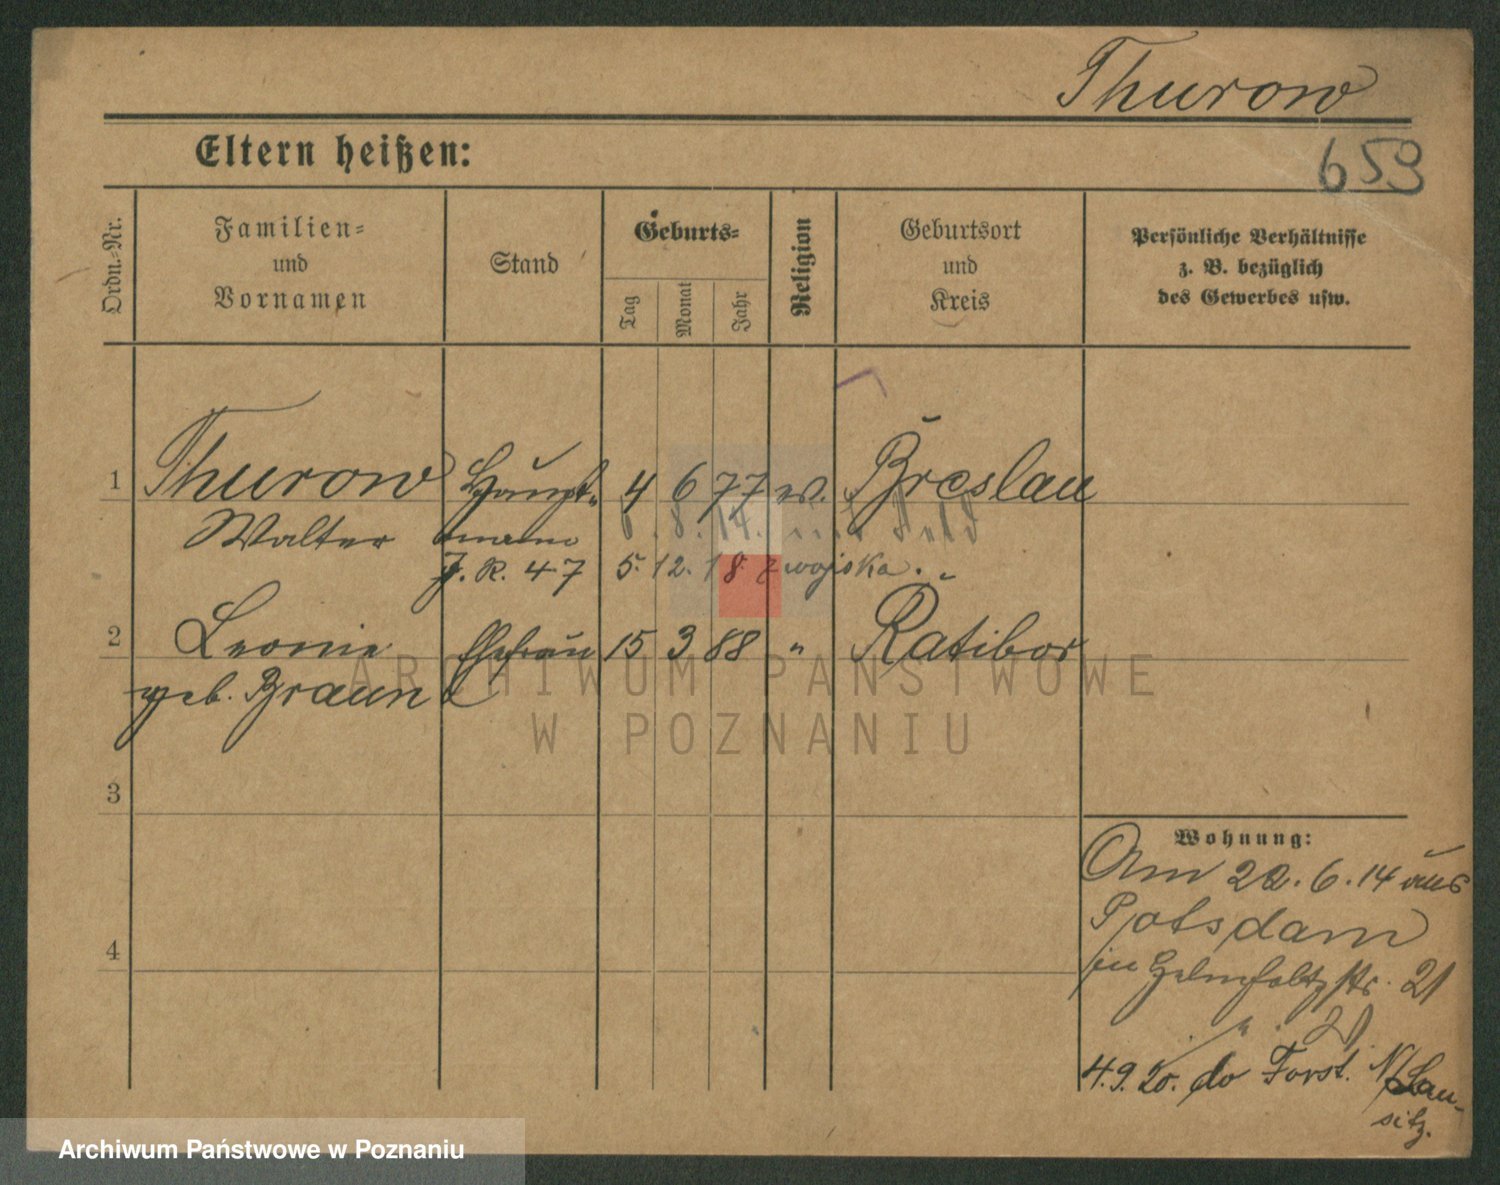 Thurow
Eltern heißen:
659
Ordn.-Nr.
Familien-
und
Vornamen
Stand
Geburts-
Tag
Monat
Jahr
Religion
Geburtsort
und
Kreis
Persönliche Verhältnisse
z. B. bezüglich
des Gewerbes usw.
1 Thurow Haupt- 4 6 77 Breslau
Walter mann 8. 8. 14. Feld
J. R. 47 5. 12. 18 z wojska.
2 Leonie Ehefrau 15 3 88 " Ratibor
geb. Braun
3
4
Wohnung:
Am 22. 6. 14 aus
Potsdam
in Helmholtzstr. 21
4. 9. 20. do Forst. N/Lau-
sitz.
ARCHIWUM PAŃSTWOWE
W POZNANIU
Archiwum Państwowe w Poznaniu